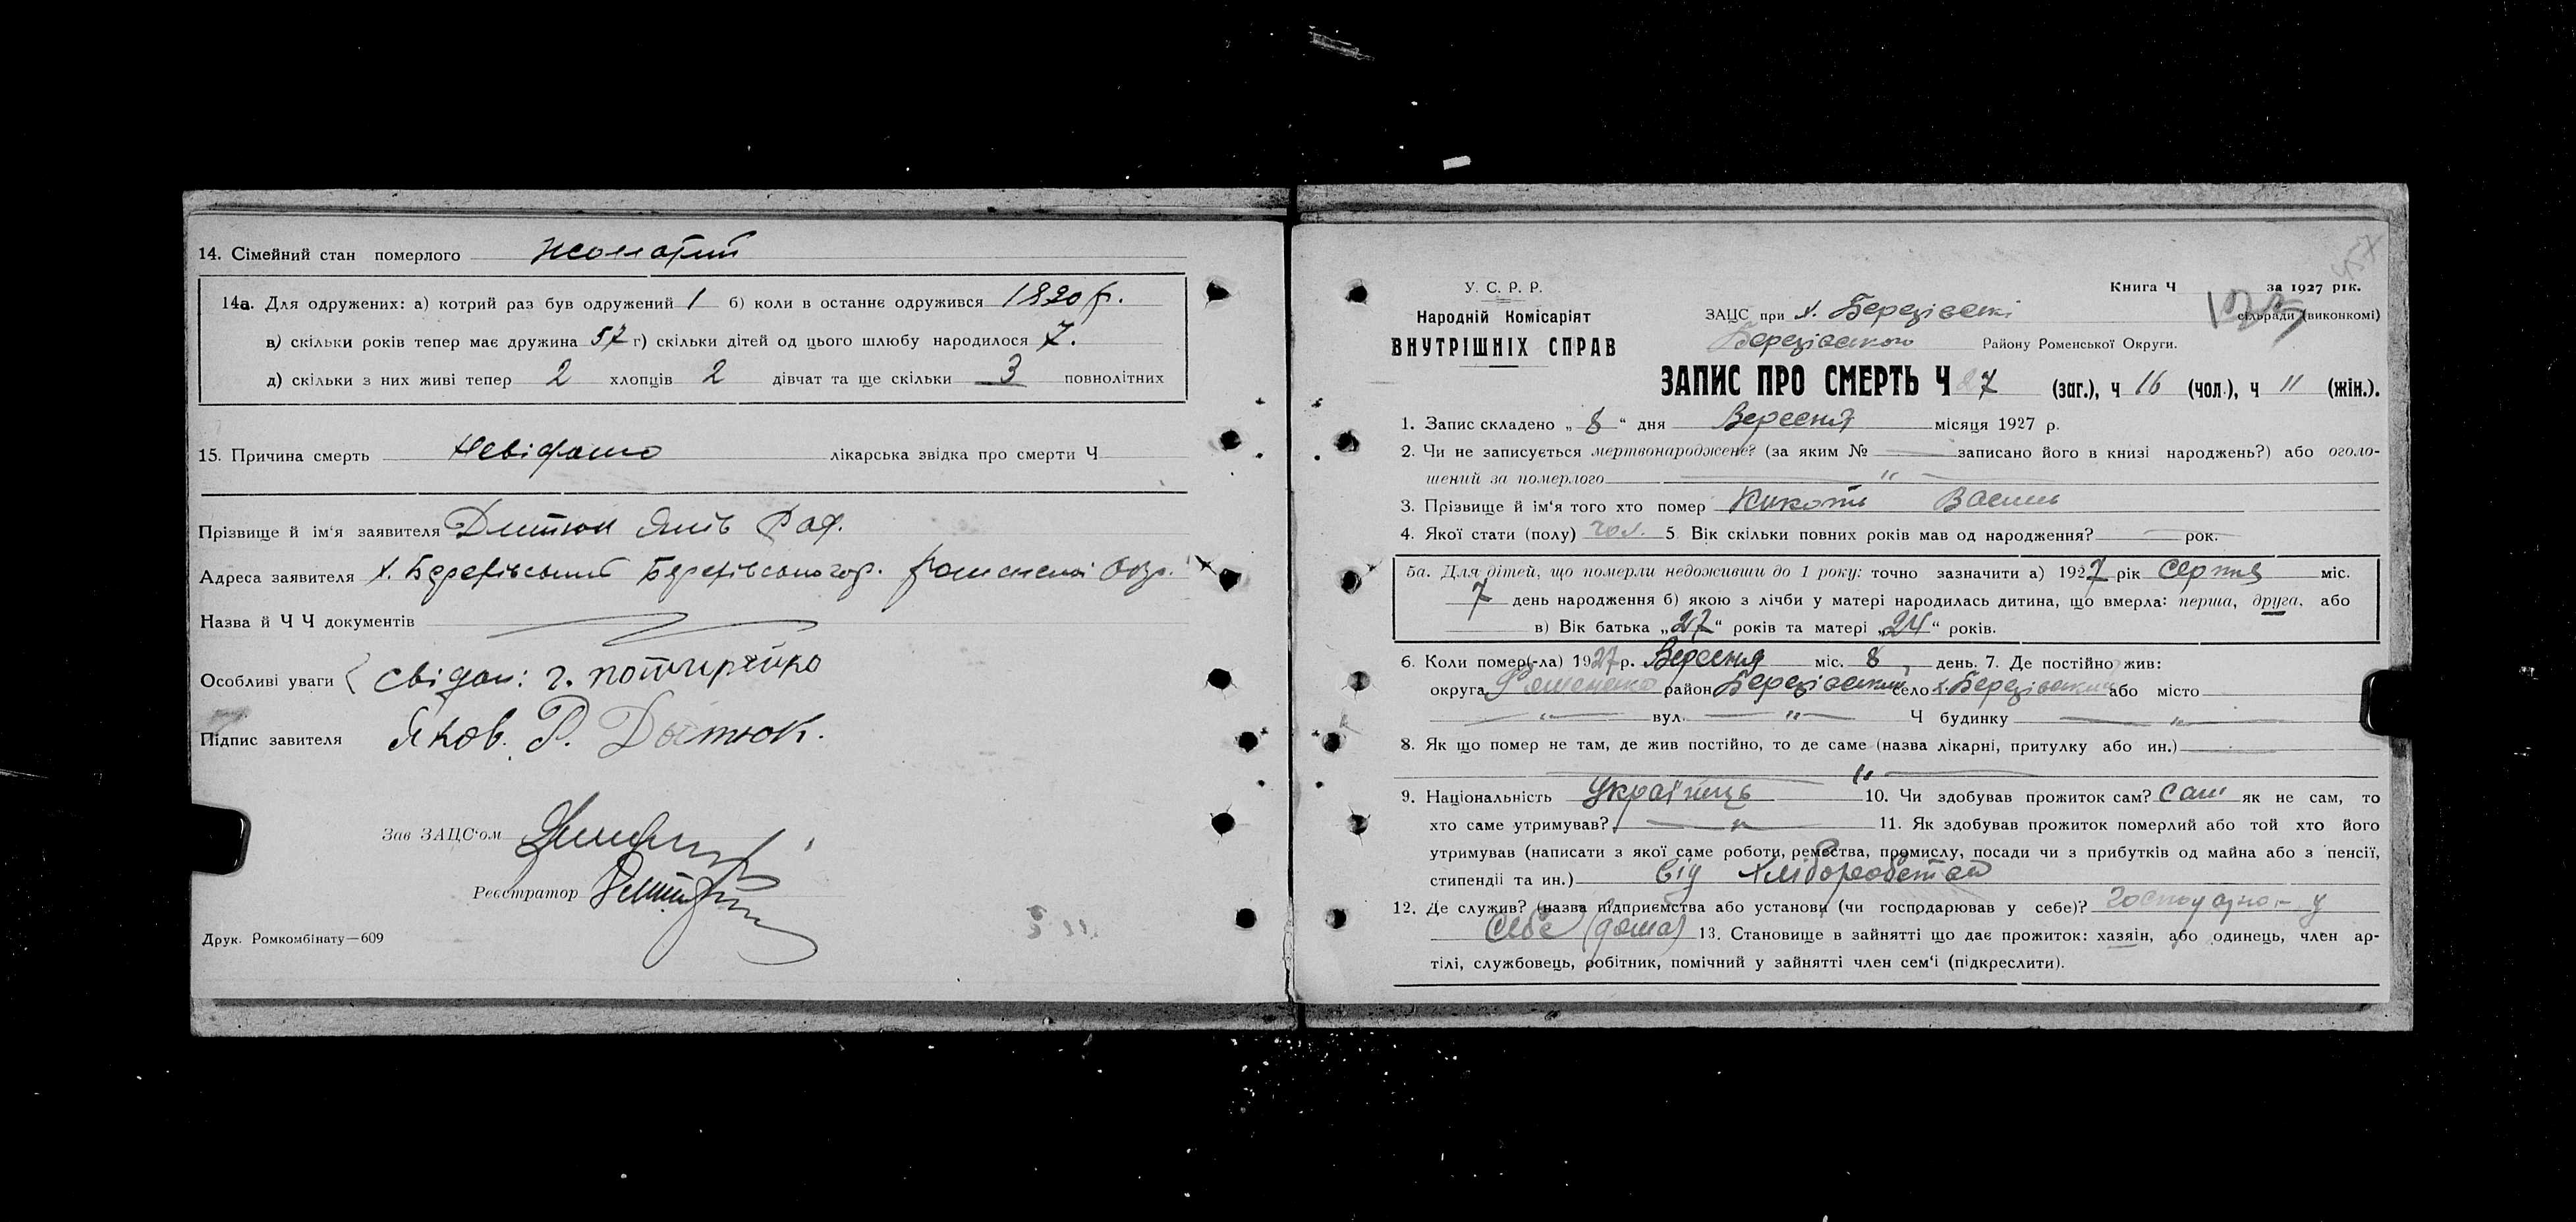 14. Сімейний стан померлого Жонатий
14а. Для одружених: а) котрий раз був одружений 1 б) коли в останнє одружився 1890 р.
в) скільки років тепер має дружина 57 г) скільки дітей од цього шлюбу народилося 7.
д) скільки з них живі тепер 2 хлопців 2 дівчат та ще скільки 3 повнолітних
15. Причина смерть Невідомо лікарська звідка про смерти Ч
Прізвище й ім'я заявителя Дитюк Яків
Адреса заявителя х. Березівський Роменської Окр.
Назва й Ч Ч документів
Особливі уваги свідки: г. потирейко
Підпис завителя Яков. Р. Дытюк.
Зав ЗАЦС'ом
Реєстратор
Друк. Ромкомбінату—609
У. С. Р. Р.
Народній Комісаріят
ВНУТРІШНІХ СПРАВ
Книга Ч за 1927 рік.
ЗАЦС при х. Березівські сільради (виконкомі)
Березівського Району Роменської Округи.
ЗАПИС ПРО СМЕРТЬ Ч 27 (заг.), ч 16 (чол.), ч 11 (жін.).
1. Запис складено „ 8 “ дня Вересня місяця 1927 р.
2. Чи не записується мертвонароджене? (за яким № записано його в книзі народжень?) або оголо-
шений за померлого „
3. Прізвище й ім'я того хто помер Кикоть Василь
4. Якої стати (полу) чол. 5. Вік скільки повних років мав од народження? рок.
5а. Для дітей, що померли недоживши до 1 року: точно зазначити а) 1927 рік Серпня міс.
7 день народження б) якою з лічби у матері народилась дитина, що вмерла: перша, друга, або
в) Вік батька „27“ років та матері „24“ років.
6. Коли помер(-ла) 1927 р. Вересня міс. 8 день. 7. Де постійно жив:
округа Роменська район Березівский село х. Березівский або місто
„ вул. „ Ч будинку „
8. Як що помер не там, де жив постійно, то де саме (назва лікарні, притулку або ин.)
„
9. Національність Українець 10. Чи здобував прожиток сам? сам як не сам, то
хто саме утримував? „ 11. Як здобував прожиток померлий або той хто його
утримував (написати з якої саме роботи, ремества, промислу, посади чи з прибутків од майна або з пенсії,
стипендії та ин.) від хліборобства
12. Де служив? (назва підприємства або установи (чи господарював у себе)? господарює у
себе (дома) 13. Становище в зайнятті що дає прожиток: хазяїн, або одинець, член ар-
тілі, службовець, робітник, помічний у зайнятті член сем'ї (підкреслити).